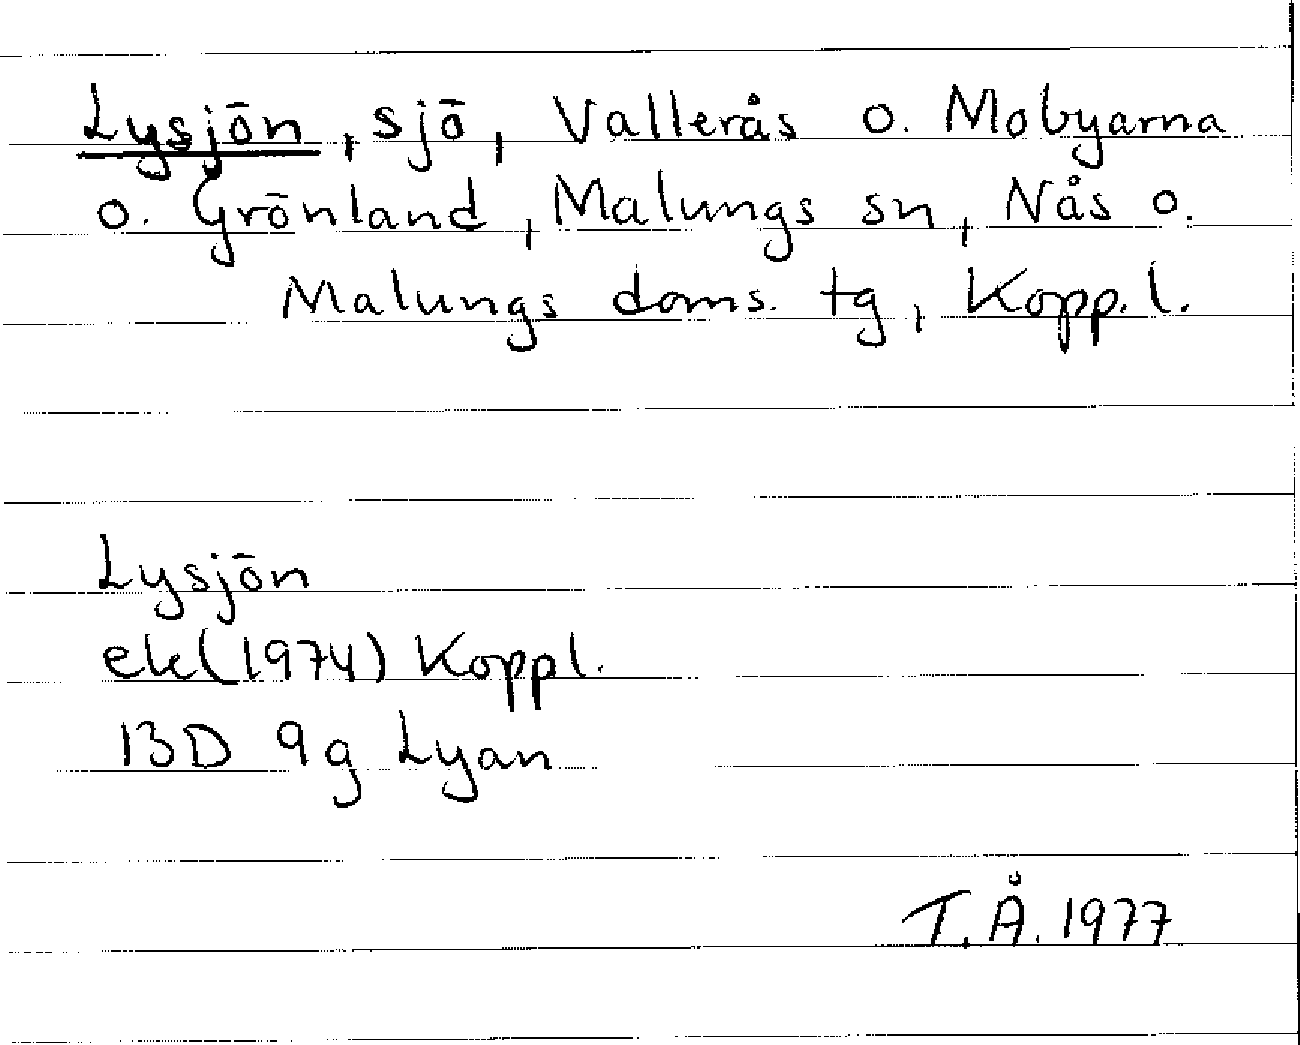 Lysjön, sjö, Vallerås o. Mobyarna
o. Grönland, Malungs sn, Nås o.
Malungs doms. tg, Kopp. l.
Lysjön
ek (1974) Koppl.
13D 9g Lyan
T.Å. 1977